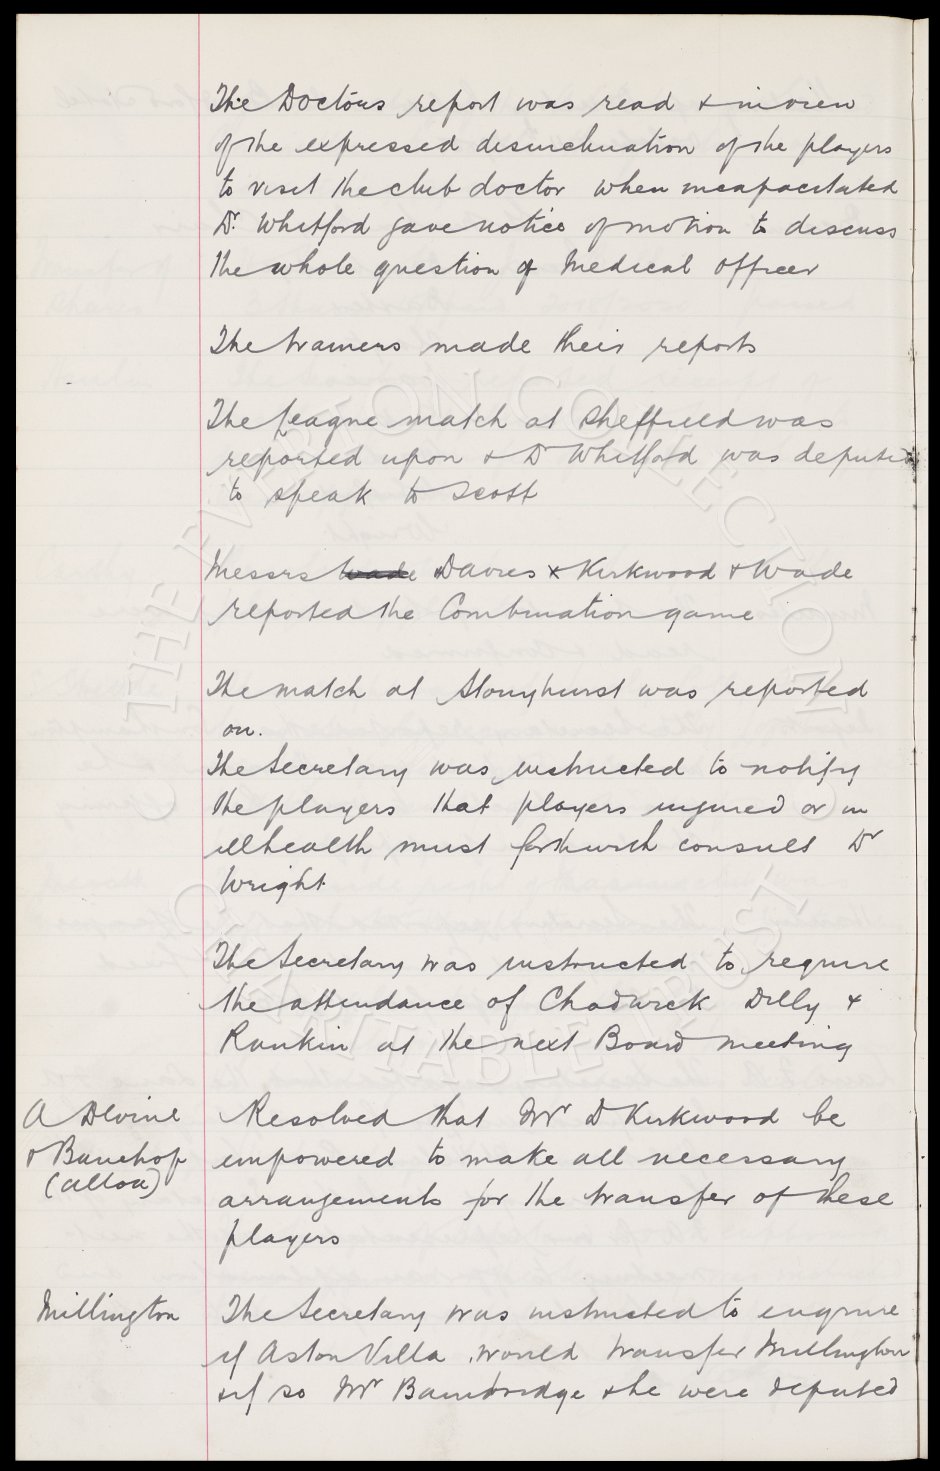 The Doctors report was read & in view
of the expressed disinclination of the players
to visit the club doctor when incapacitated
Dr. Whitford gave notice of motion to discuss
the whole question of Medical Officer
The trainers made their reports
The League match at Sheffield was
reported upon & Dr Whitford was deputed
to speak to Scott
Messrs Wade Davies & Kirkwood & Wade
reported the Combination game
The match at Stonyhurst was reported
on.
The Secretary was instructed to notify
the players that players injured or in
ill health must forthwith consult Dr
Wright.
The Secretary was instructed to require
the attendance of Chadwick Dilly &
Rankin at the next Board meeting
A Devine
& Bauchop
(Alloa)
Resolved that Mr D Kirkwood be
empowered to make all necessary
arrangements for the transfer of these
players
Millington
The Secretary was instructed to enquire
if Aston Villa would transfer Millington
& if so Mr Bainbridge & he were deputed
THE EVERTON COLLECTION
CHARITABLE TRUST